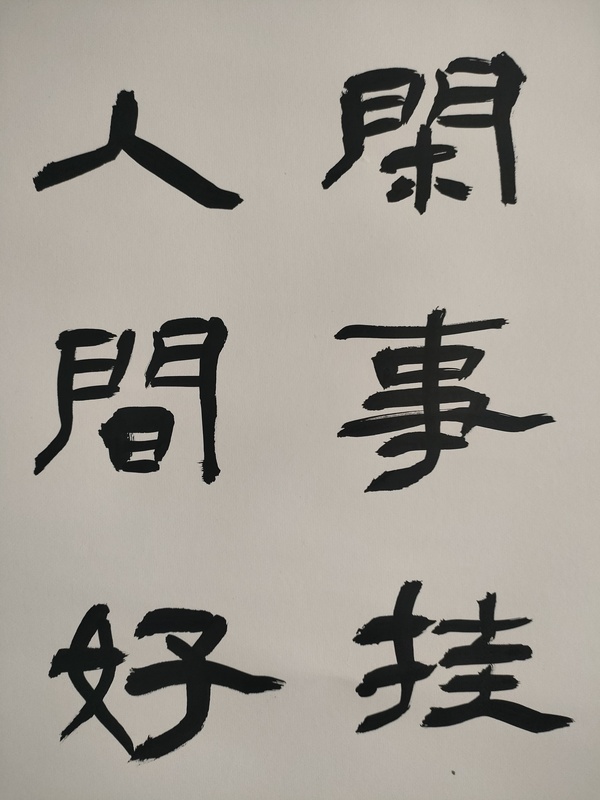 閑事挂
人間好